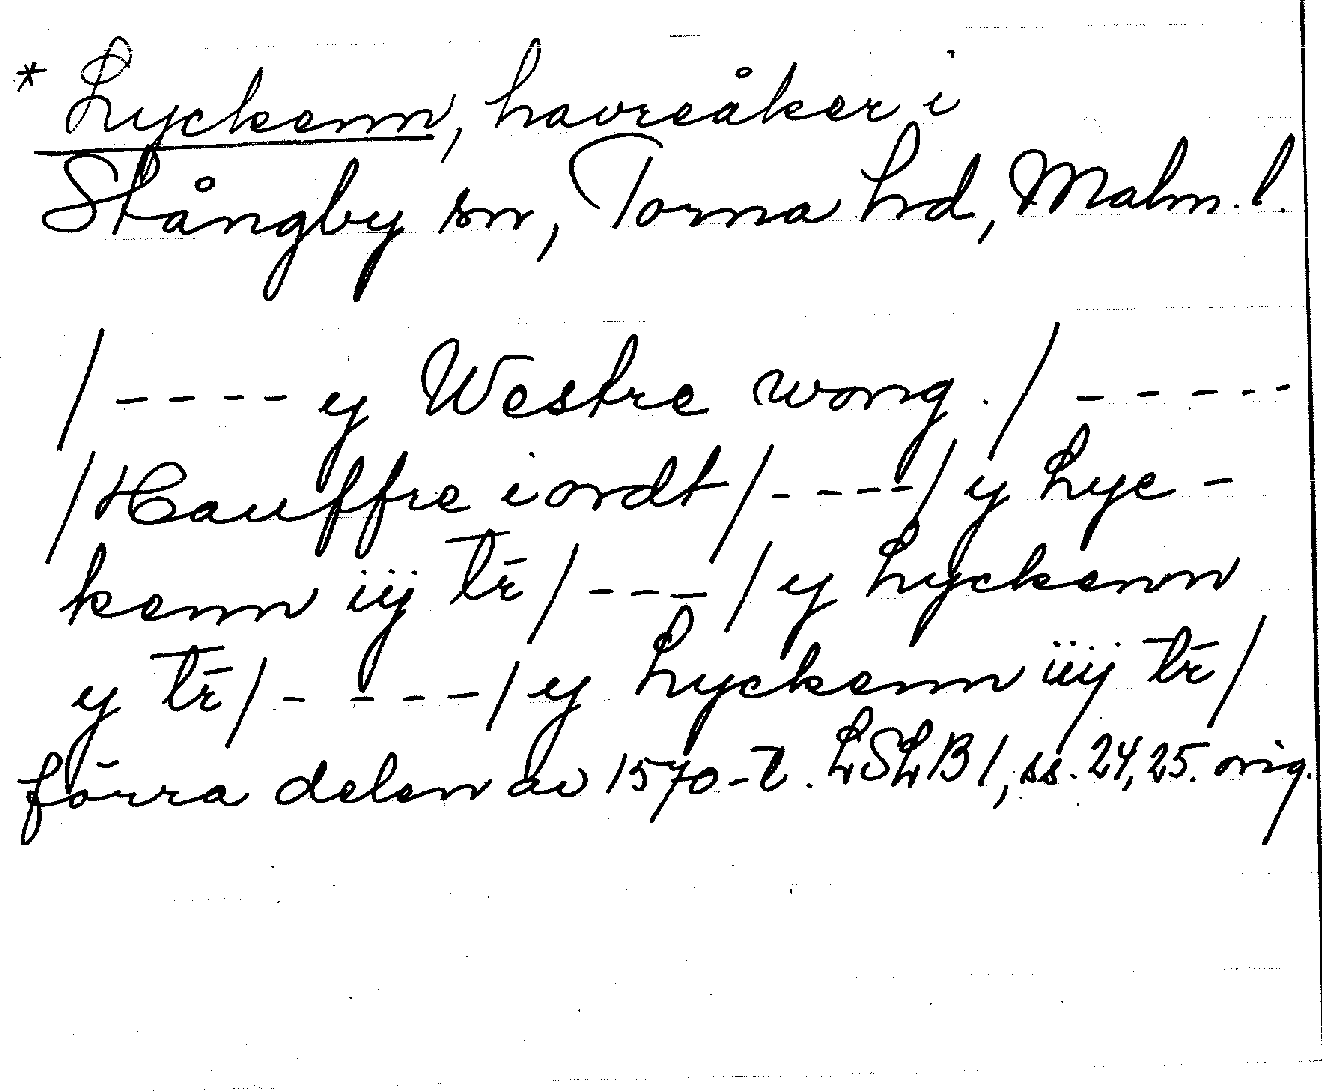 * Lyckenn, havreåker i
Stångby sn, Torna hd, Malm. l.
/ - - - - y Westre wong. / - - - - -
/Hauffre iordt/ - - - - / y Lyc -
kenn iij tr̄ / - - - / y Lyckenn
y tr̄ / - - - - / y Lyckenn iiij tr̄ /
förra delen av 1570-t. LSLB 1, ss. 24, 25. orig.